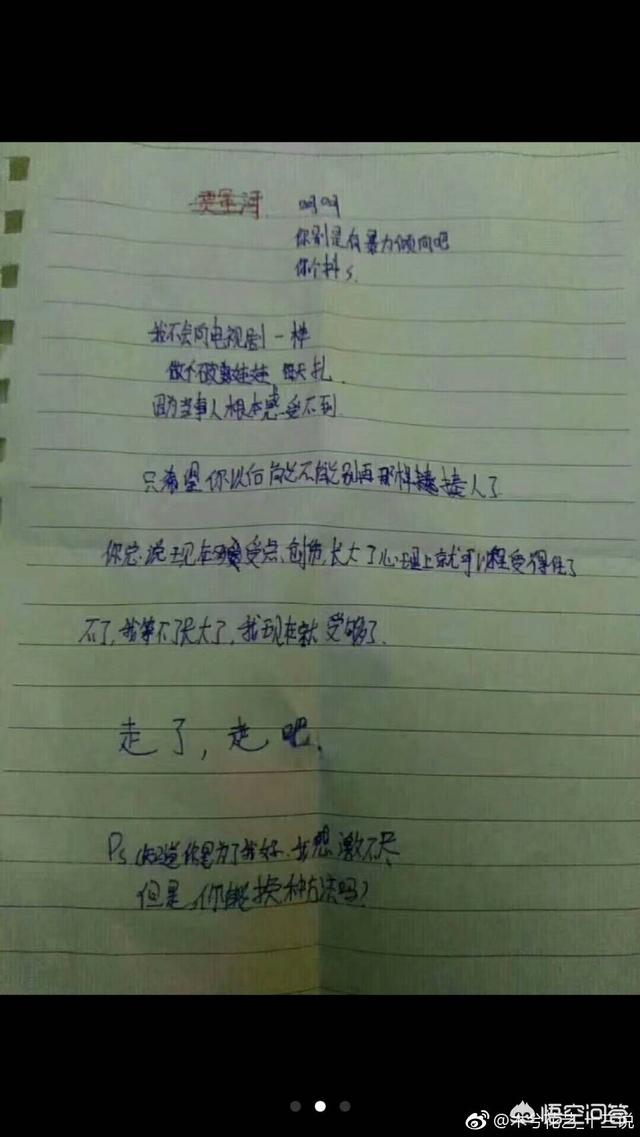 呵呵
你别是有暴力倾向吧
你个抖s.
我不会向电视剧一样
做个破娃娃 每天扎.
因为当事人根本感受不到.
只希望你以后能不能别再那样揍人了
你总说现在受点创伤,长大了心理上就可以承受得住了
不了,我等不了长大了,我现在就受够了.
走了,走吧.
Ps 知道你是为了我好.我感激不尽
但是,你能换种方法吗?
悟空问答